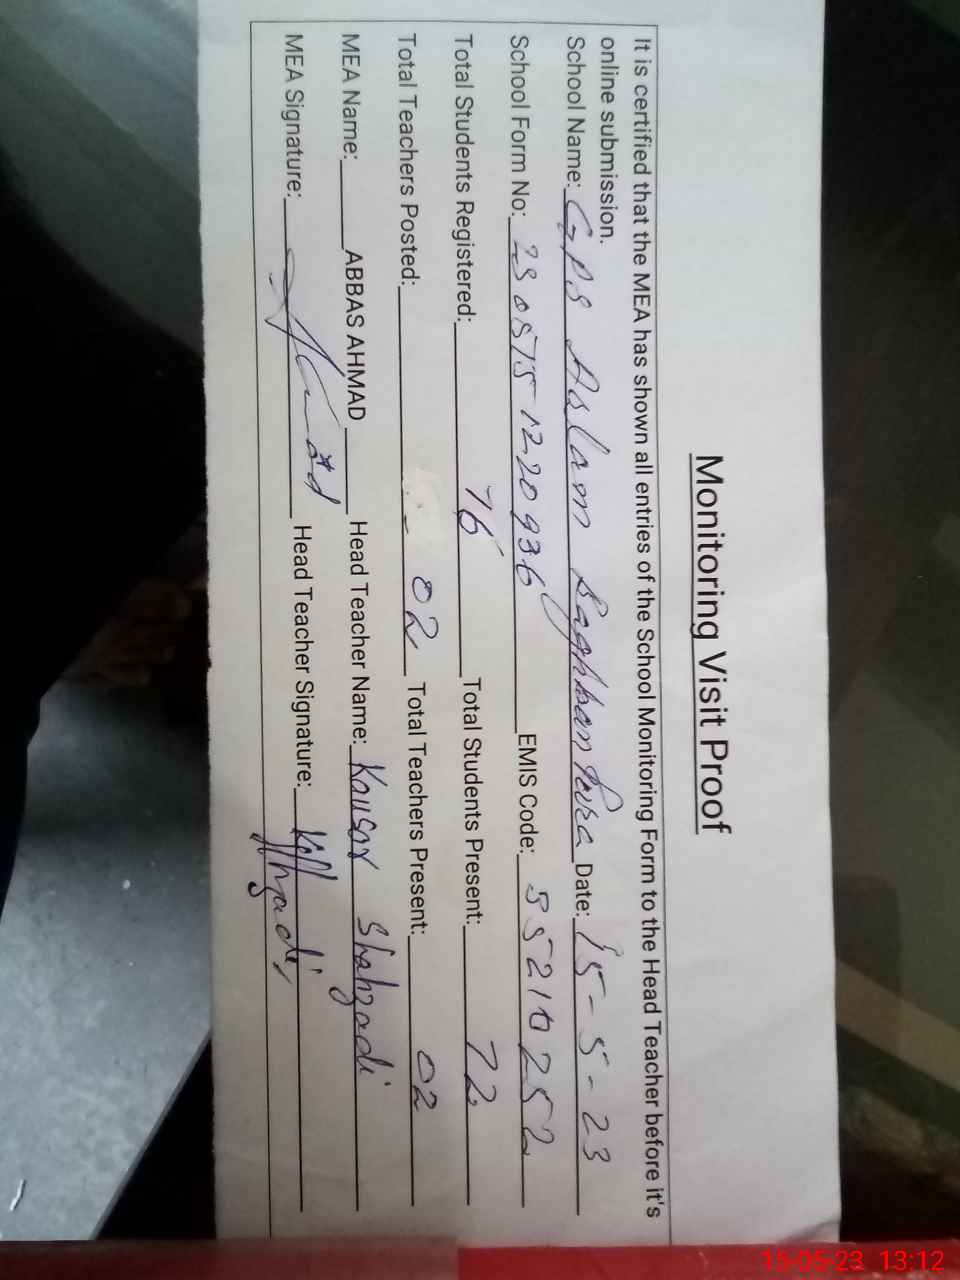 Monitoring Visit Proof
It is certified that the MEA has shown all entries of the School Monitoring Form to the Head Teacher before it's
online submission.
School Name: GPS Aslam Baghban Pura Date: 15-5-23
School Form No: 2305151220936 EMIS Code: 35210252
Total Students Registered: 76 Total Students Present: 72
Total Teachers Posted: 02 Total Teachers Present: 02
MEA Name: ABBAS AHMAD Head Teacher Name: Kousar Shahzadi
MEA Signature: Head Teacher Signature:
15-05-23 13:12